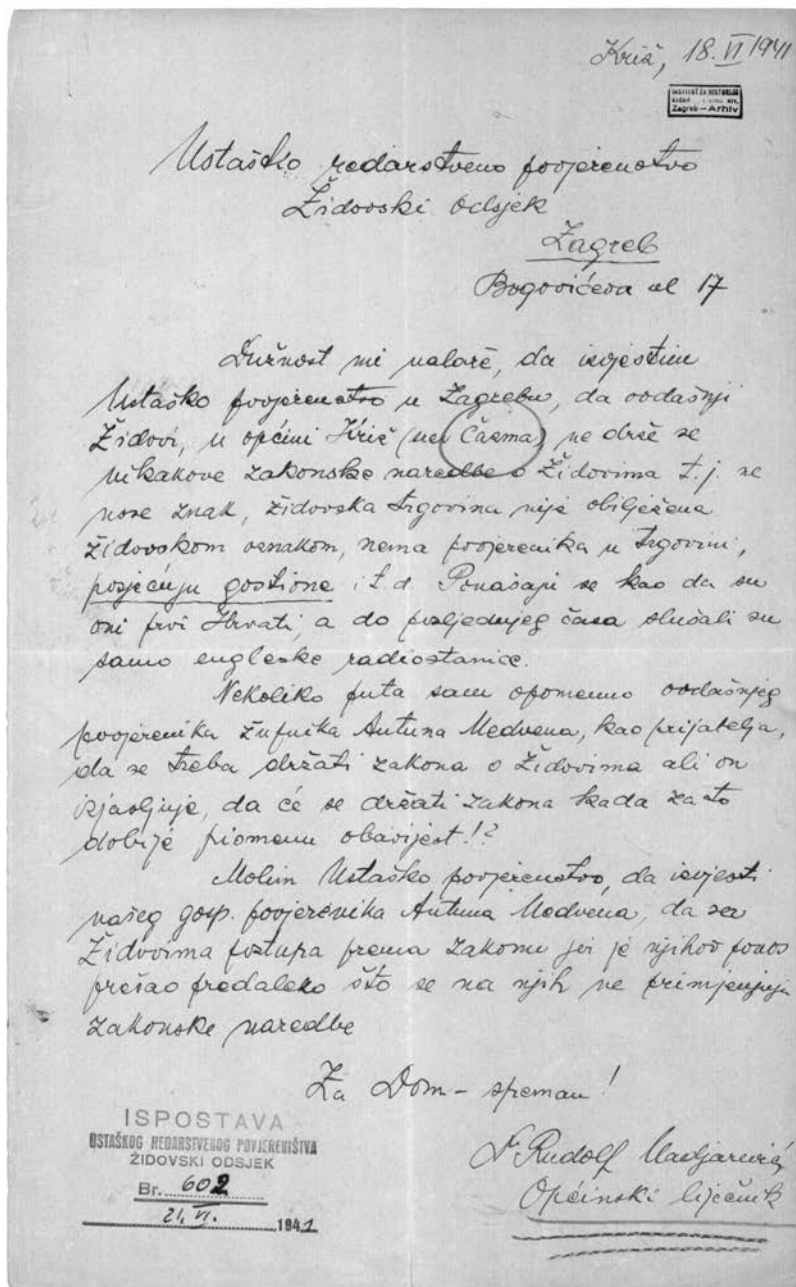 Križ, 18. VI 1941
Zagreb – Arhiv
Ustaško redarstveno povjerenstvo
Židovski odsjek
Zagreb
Bogovićeva ul 17
Dužnost mi nalaže, da izvjestim
Ustaško povjerenstvo u Zagrebu, da ovdašnji
Židovi, u općini Križ (Čazma) ne drže se
nikakove zakonske naredbe o Židovima t.j. ne
nose znak, židovska trgovina nije obilježena
židovskom oznakom, nema povjerenika u trgovini,
posjećuju gostione i t.d. Ponašaju se kao da su
oni prvi Hrvati, a do posljednjeg časa slušali su
samo engleske radiostanice.
Nekoliko puta sam opomenuo ovdašnjeg
povjerenika župnika Antuna Medvena, kao prijatelja,
da se treba držati zakona o Židovima ali on
izjavljuje, da će se držati zakona kada za to
dobije pismenu obavijest!?
Molim Ustaško povjerenstvo, da izvjesti
našeg gosp. povjerenika Antuna Medvena, da sa
Židovima postupa prema zakonu jer je njihov ponos
prešao predaleko što se na njih ne primjenjuju
zakonske naredbe
Za Dom – spreman!
ISPOSTAVA
USTAŠKOG REDARSTVENOG POVJERENIŠTVA
ŽIDOVSKI ODSJEK
Br. 602
21. VI. 1941
Dr Rudolf
Općinski liječnik